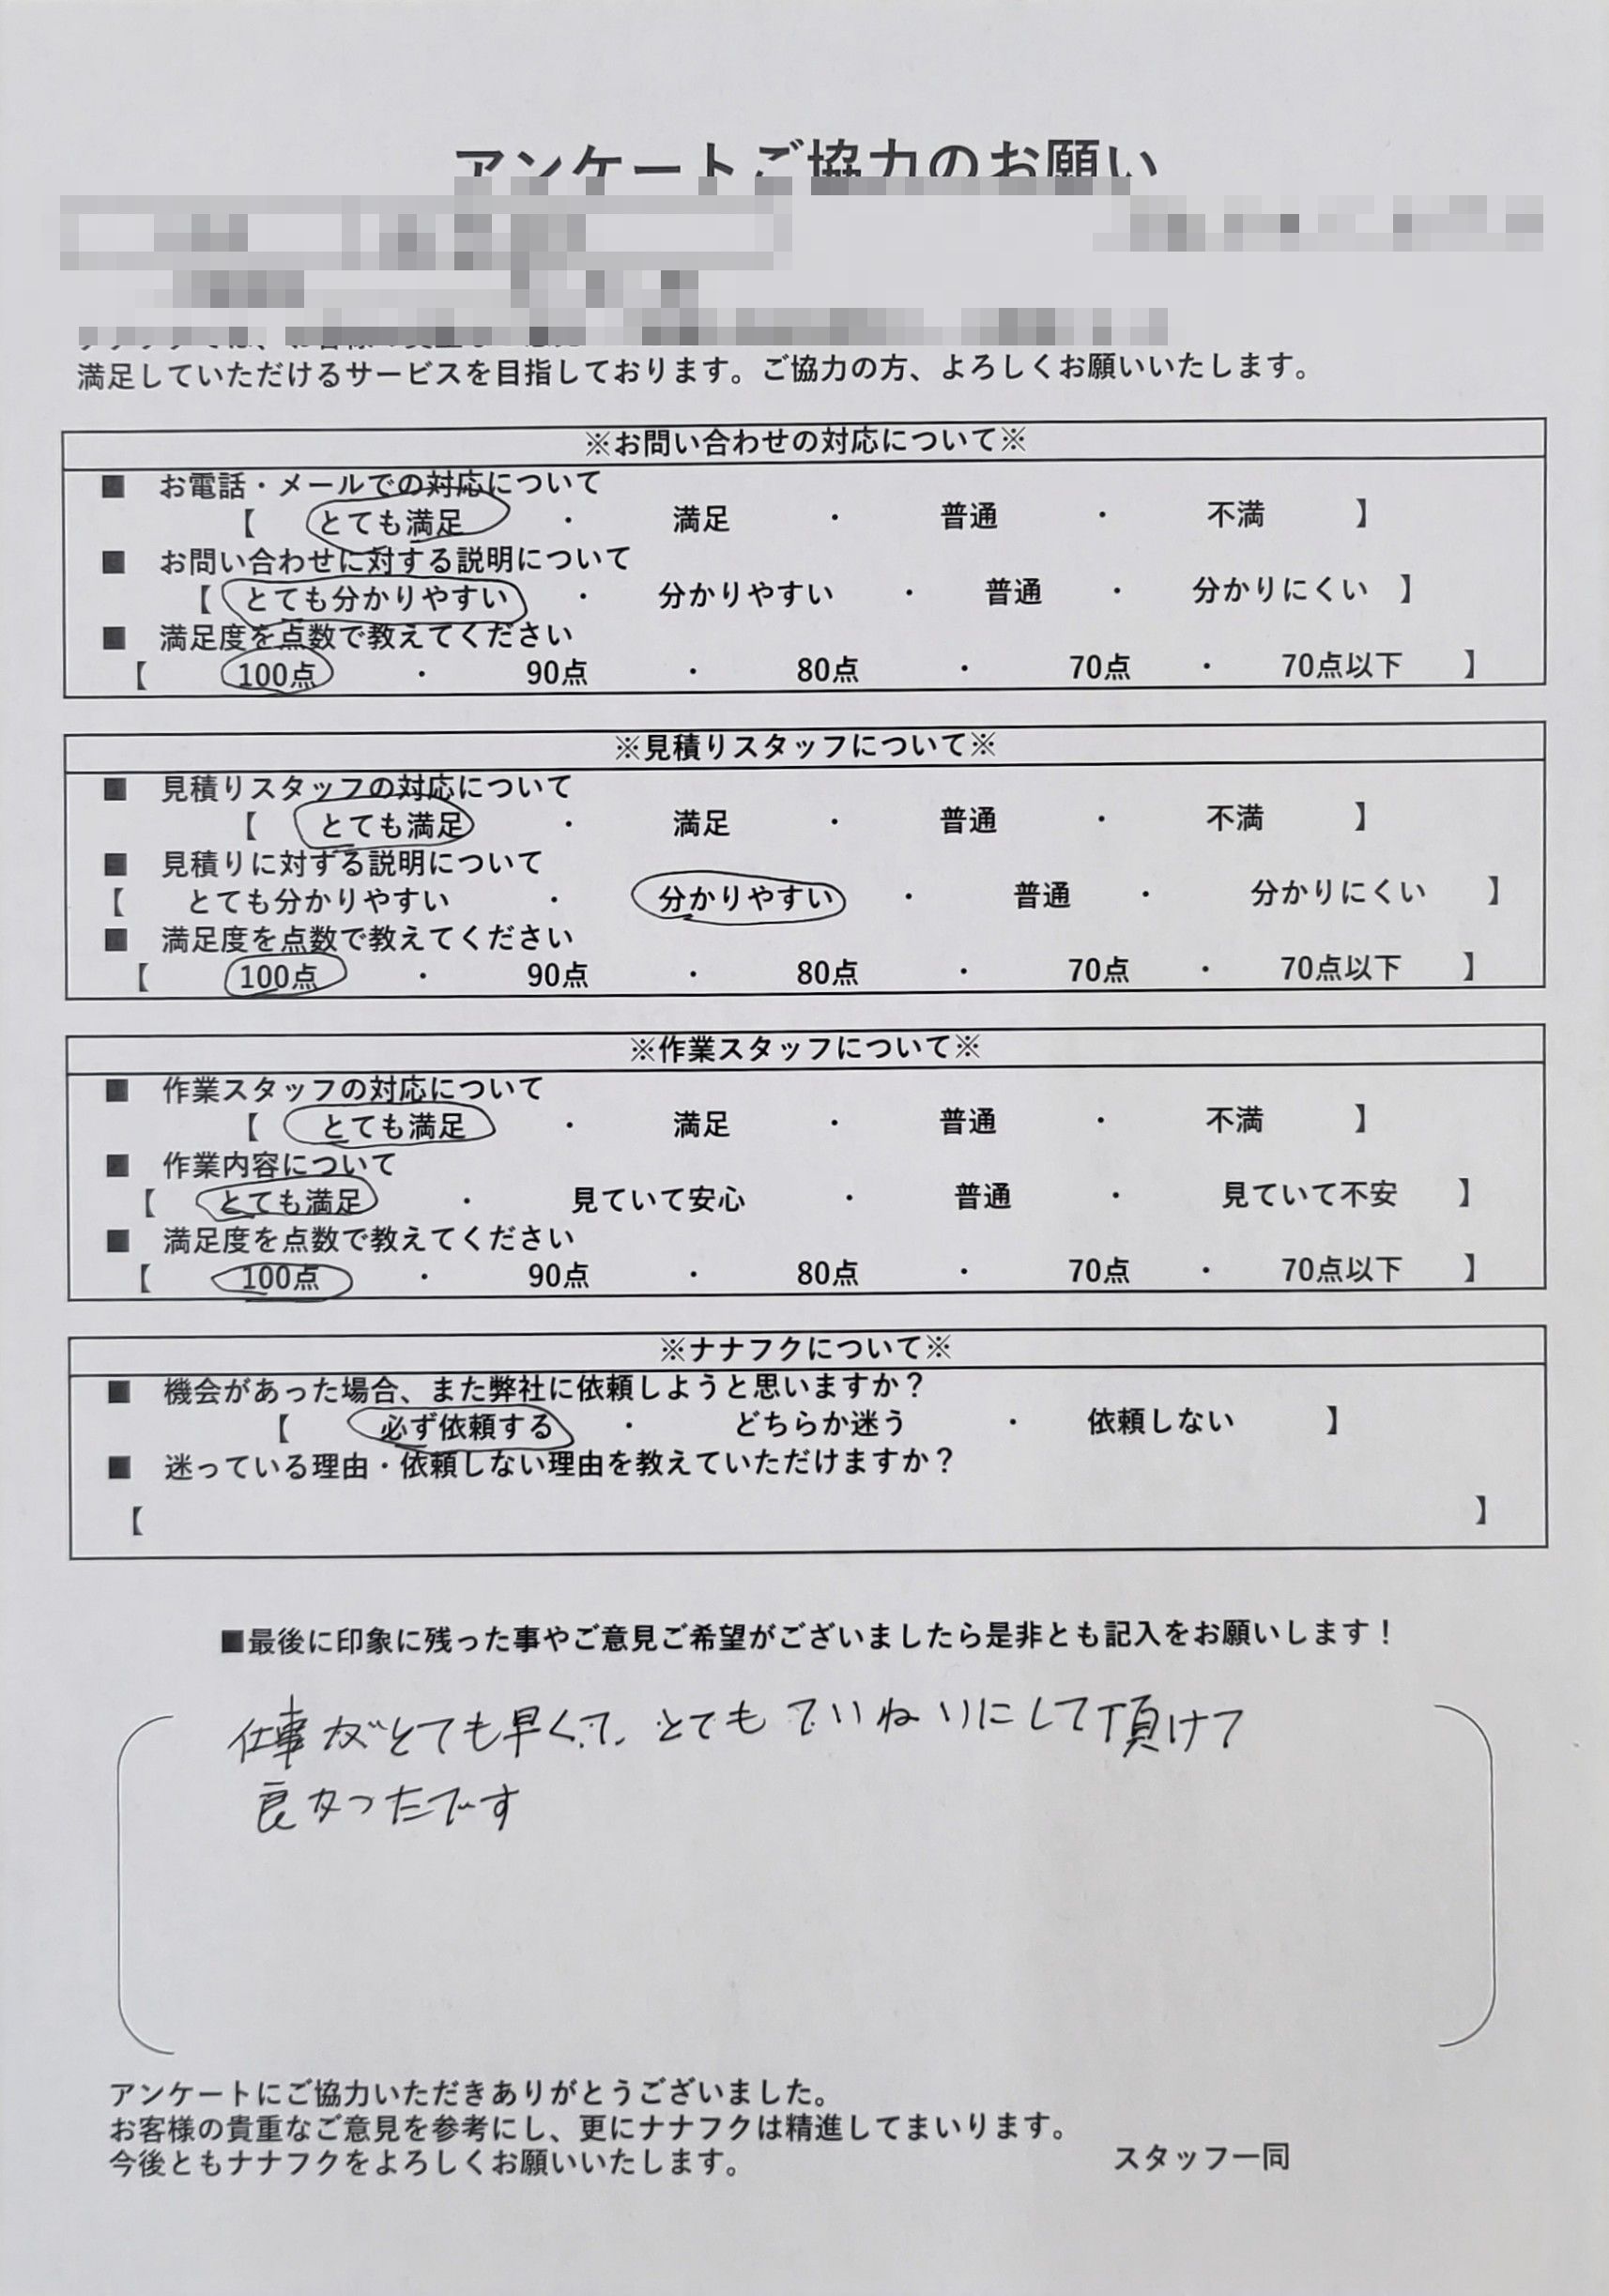 アンケートご協力のお願い
満足していただけるサービスを目指しております。ご協力の方、よろしくお願いいたします。
※お問い合わせの対応について※
■ お電話・メールでの対応について
【 とても満足 ・ 満足 ・ 普通 ・ 不満 】
■ お問い合わせに対する説明について
【 とても分かりやすい ・ 分かりやすい ・ 普通 ・ 分かりにくい 】
■ 満足度を点数で教えてください
【 100点 ・ 90点 ・ 80点 ・ 70点 ・ 70点以下 】
※見積りスタッフについて※
■ 見積りスタッフの対応について
【 とても満足 ・ 満足 ・ 普通 ・ 不満 】
■ 見積りに対する説明について
【 とても分かりやすい ・ 分かりやすい ・ 普通 ・ 分かりにくい 】
■ 満足度を点数で教えてください
【 100点 ・ 90点 ・ 80点 ・ 70点 ・ 70点以下 】
※作業スタッフについて※
■ 作業スタッフの対応について
【 とても満足 ・ 満足 ・ 普通 ・ 不満 】
■ 作業内容について
【 とても満足 ・ 見ていて安心 ・ 普通 ・ 見ていて不安 】
■ 満足度を点数で教えてください
【 100点 ・ 90点 ・ 80点 ・ 70点 ・ 70点以下 】
※ナナフクについて※
■ 機会があった場合、また弊社に依頼しようと思いますか？
【 必ず依頼する ・ どちらか迷う ・ 依頼しない 】
■ 迷っている理由・依頼しない理由を教えていただけますか？
【 】
■最後に印象に残った事やご意見ご希望がございましたら是非とも記入をお願いします！
仕事がとても早くて、とてもていねいにして頂けて
良かったです
アンケートにご協力いただきありがとうございました。
お客様の貴重なご意見を参考にし、更にナナフクは精進してまいります。
今後ともナナフクをよろしくお願いいたします。 スタッフ一同